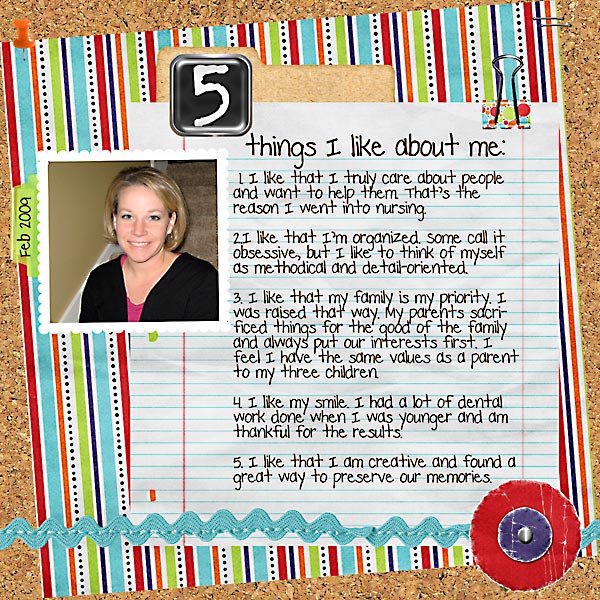 5
things I like about me:
1. I like that I truly care about people
and want to help them. That's the
reason I went into nursing.
2. I like that I'm organized, some call it
obsessive, but I like to think of myself
as methodical and detail-oriented.
3. I like that my family is my priority. I
was raised that way. My parents sacri-
ficed things for the good of the family
and always put our interests first. I
feel I have the same values as a parent
to my three children.
4. I like my smile. I had a lot of dental
work done when I was younger and am
thankful for the results.
5. I like that I am creative and found a
great way to preserve our memories.
Feb 2009